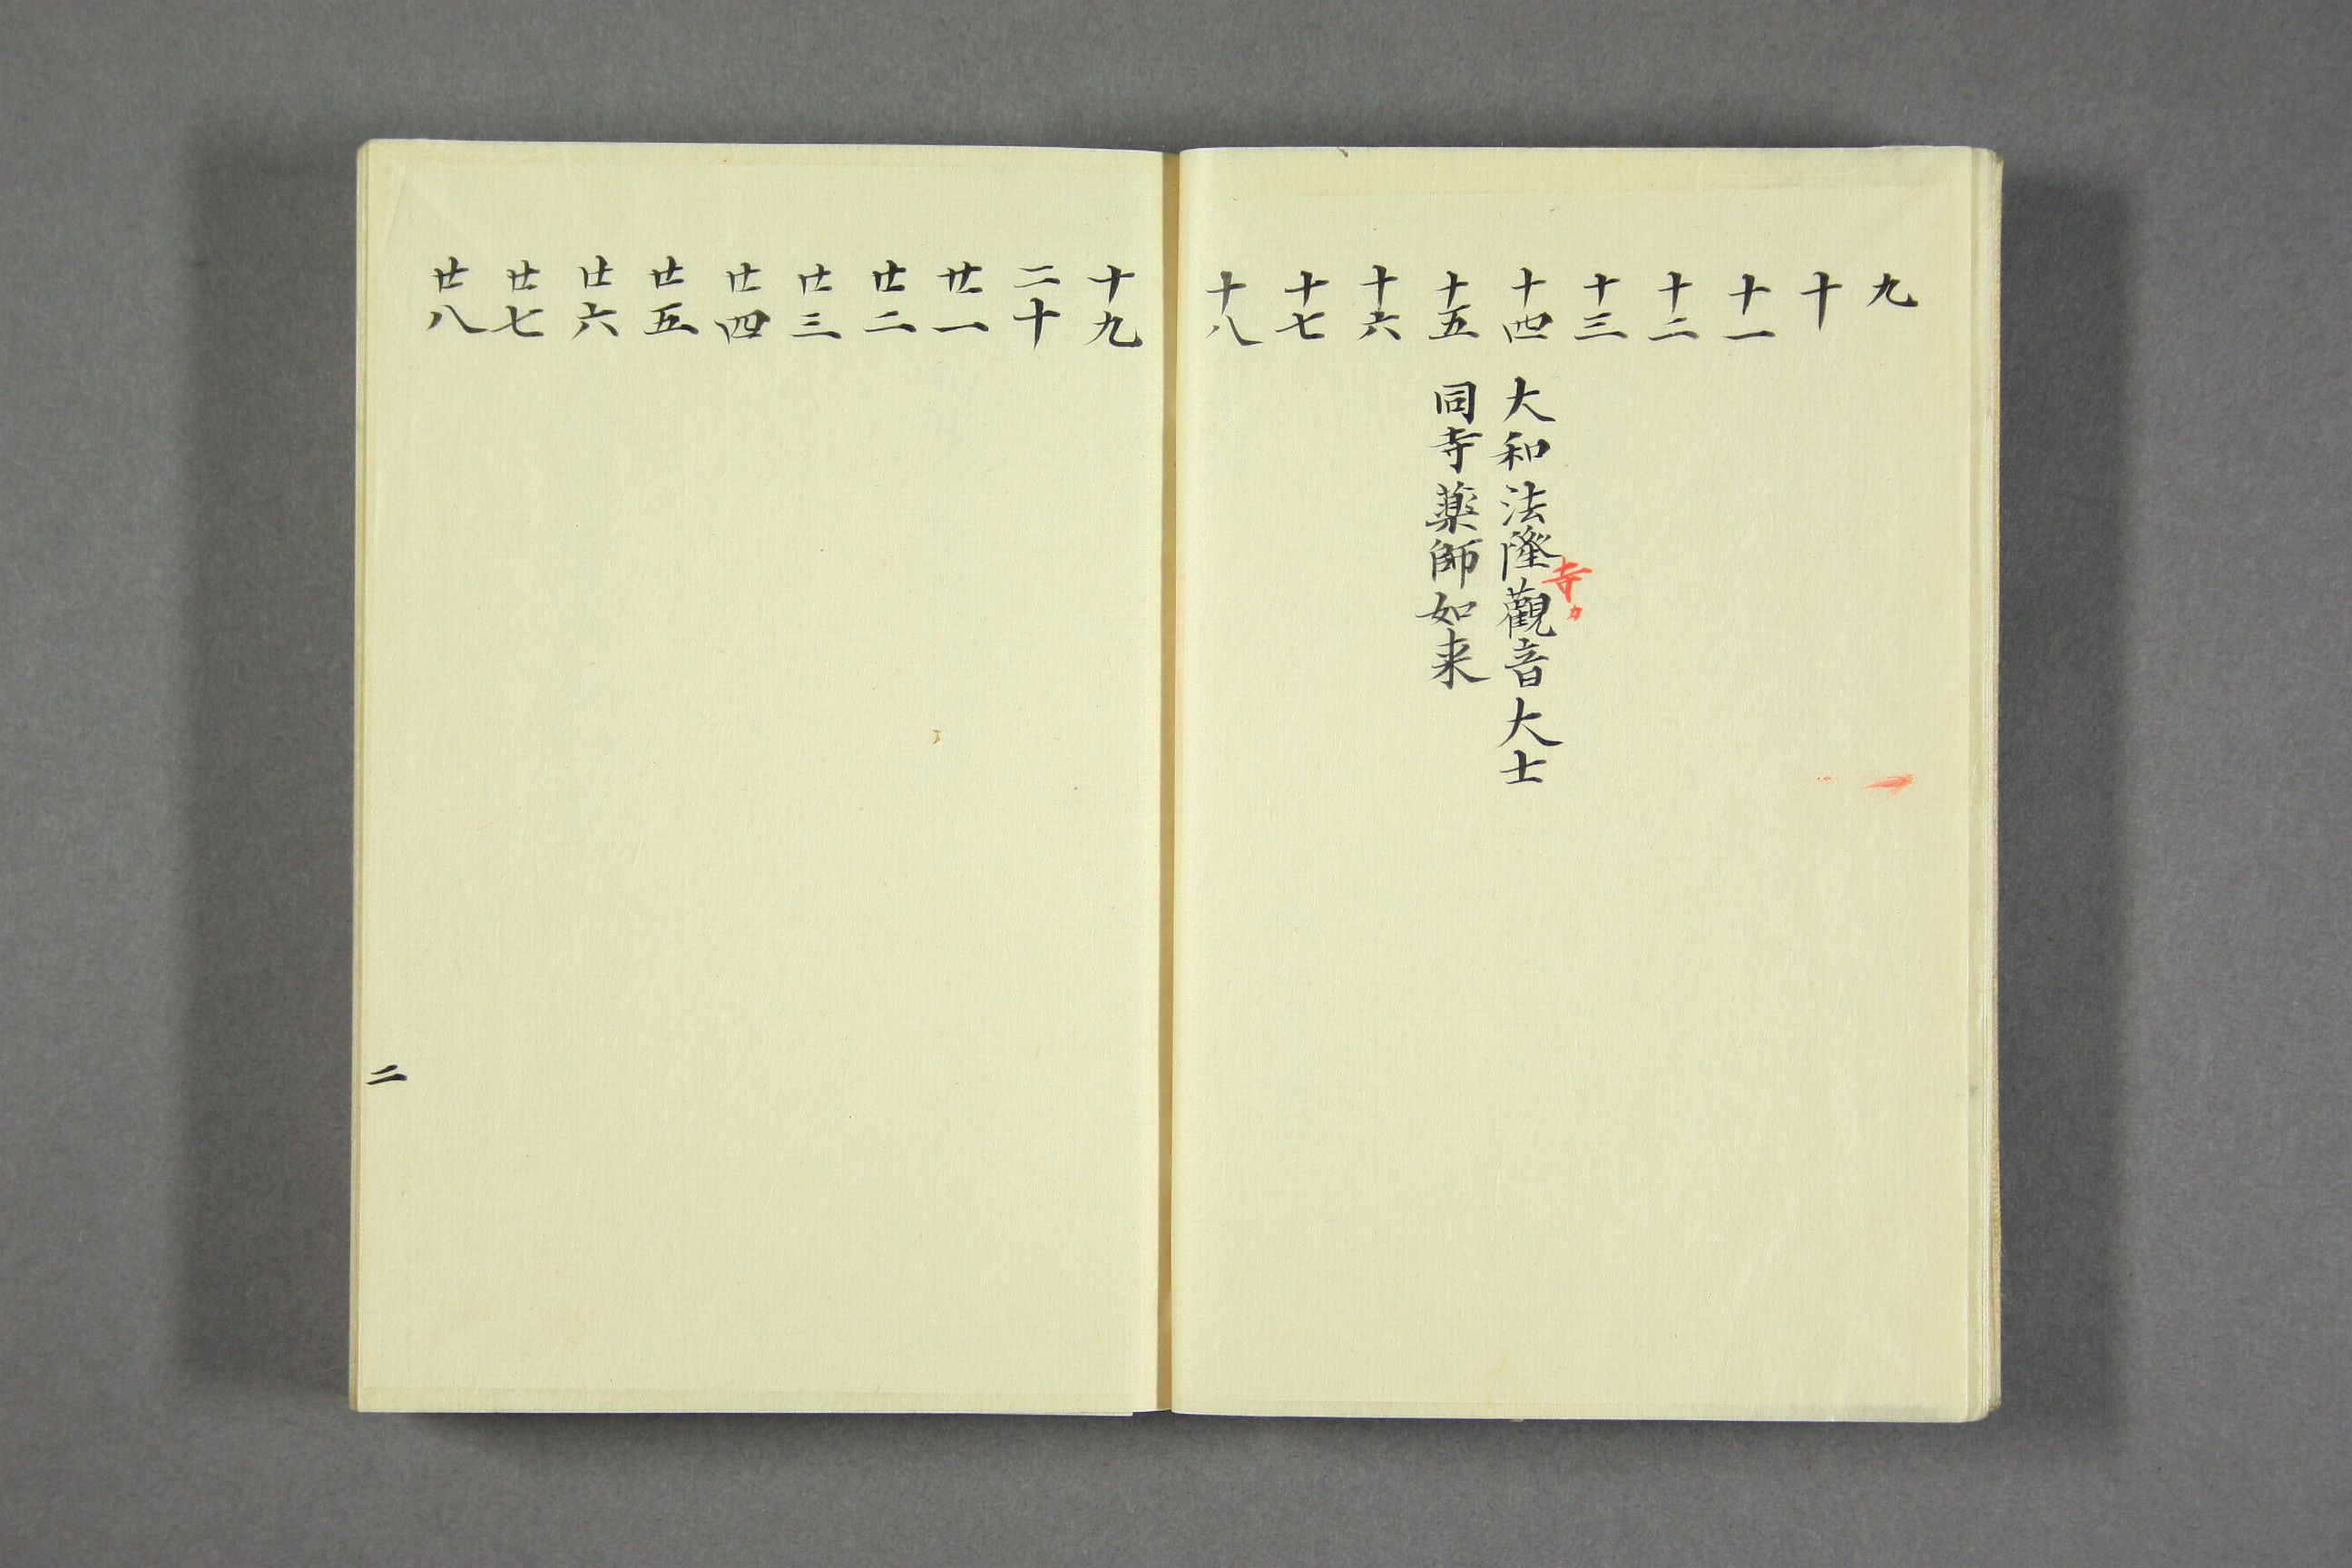 九
十
十一
十二
十三
十四 大和法隆觀音大士
寺カ
十五 同寺薬師如来
十六
十七
十八
十九
二十
廿一
廿二
廿三
廿四
廿五
廿六
廿七
廿八
二